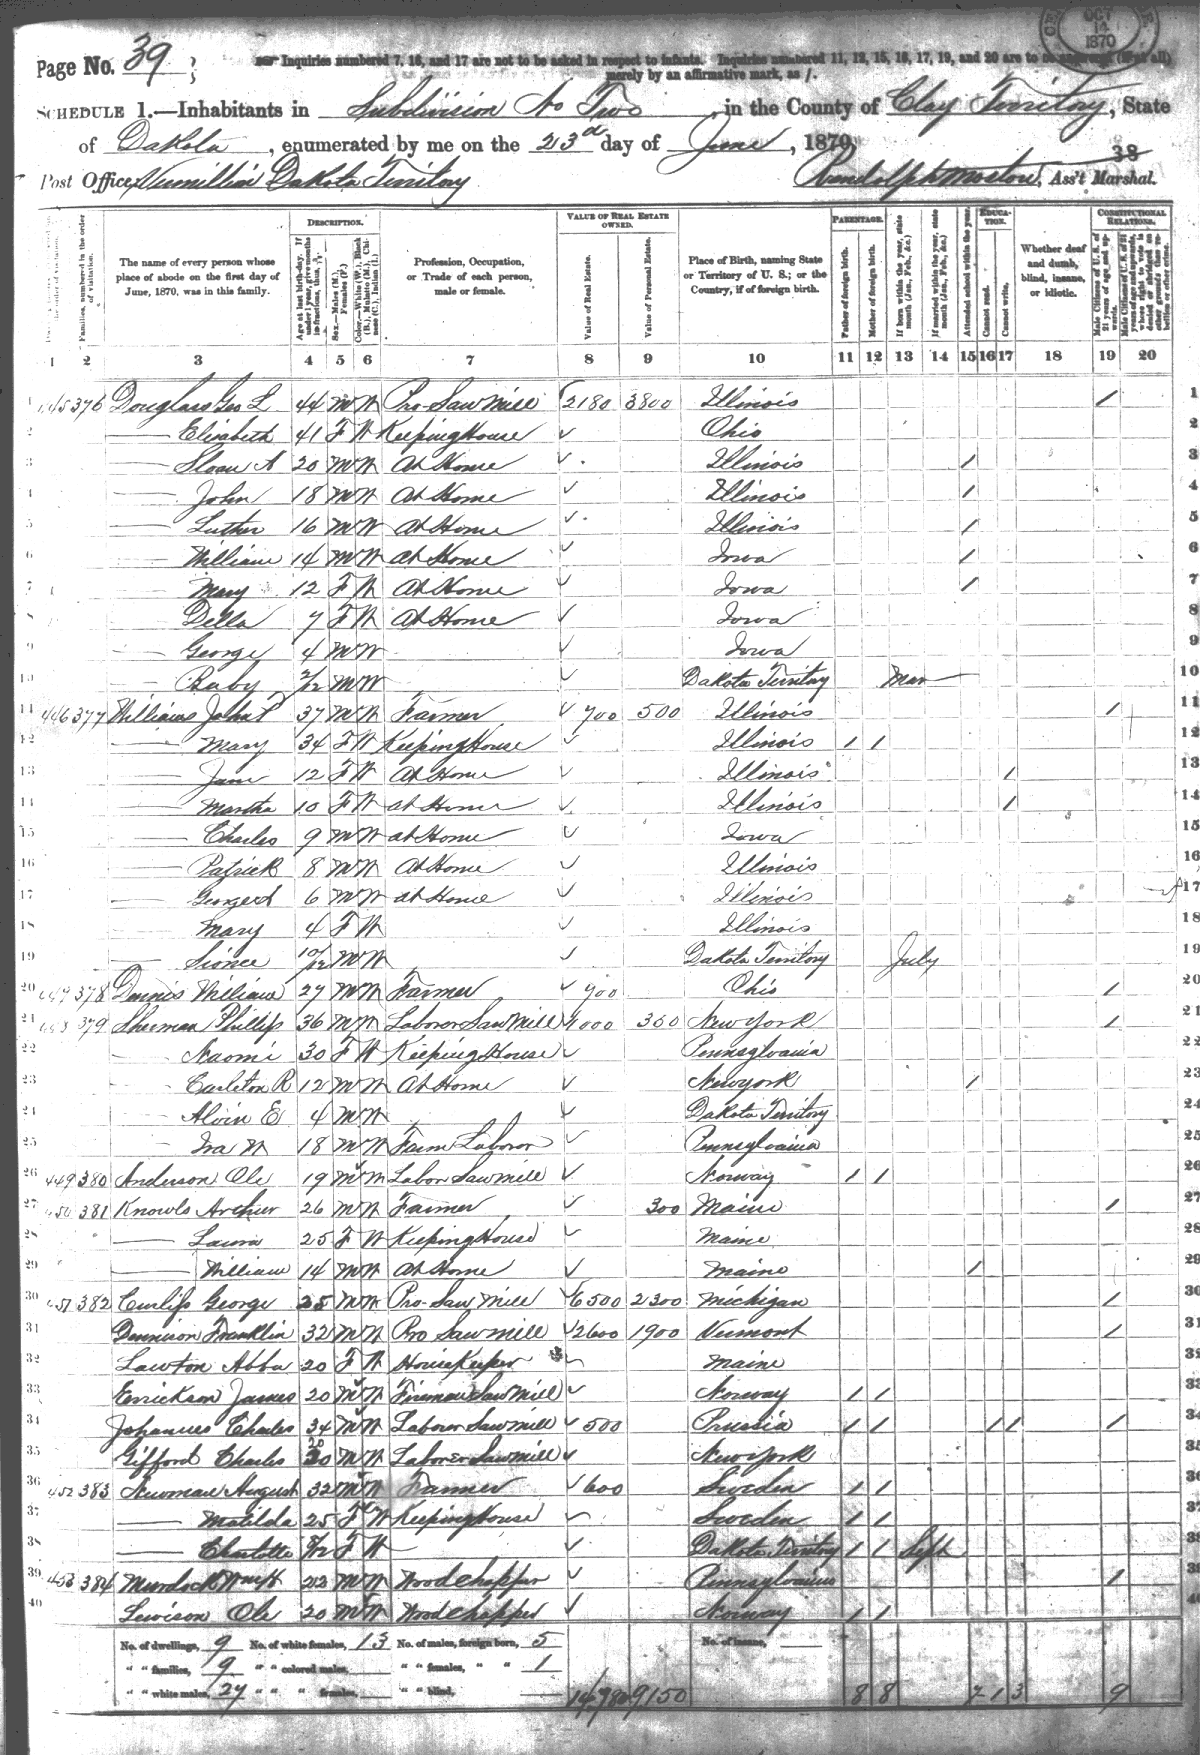 OCT 12 1870
Page No. 39
Inquiries numbered 7, 16, and 17 are not to be asked in respect to infants. Inquiries numbered 11, 12, 15, 16, 17, 19, and 20 are to be answered (if at all)
merely by an affirmative mark, as /.
SCHEDULE 1.—Inhabitants in Subdivision No Two, in the County of Clay Territory, State
of Dakota, enumerated by me on the 23d day of June, 1870.
38
Post Office, Vermillion Dakota Territory Randolph Morton, Ass't Marshal.
DESCRIPTION. VALUE OF REAL ESTATE OWNED. PARENTAGE. EDUCATION. CONSTITUTIONAL RELATIONS.
Families, numbered in the order of visitation.
The name of every person whose place of abode on the first day of June, 1870, was in this family.
Age at last birth-day. If under 1 year, give months in fractions, thus,
Sex.—Males (M.), Females (F.)
Color.—White (W.), Black (B.), Mulatto (M.), Chinese (C.), Indian (I.)
Profession, Occupation, or Trade of each person, male or female.
Value of Real Estate.
Value of Personal Estate.
Place of Birth, naming State or Territory of U. S.; or the Country, if of foreign birth.
Father of foreign birth.
Mother of foreign birth.
If born within the year, state month (Jan., Feb., &c.)
If married within the year, state month (Jan., Feb., &c.)
Attended school within the year.
Cannot read.
Cannot write.
Whether deaf and dumb, blind, insane, or idiotic.
Male Citizens of U. S. of 21 years of age and upwards.
1 2 3 4 5 6 7 8 9 10 11 12 13 14 15 16 17 18 19 20
1 445 376 Douglass Geo L 44 M W Pro Saw Mill 2180 3800 Illinois / 1
2 — Elizabeth 41 F W Keeping House Ohio 2
3 — Sloan A 20 M W At Home Illinois / 3
4 — John 18 M W At Home Illinois / 4
5 — Luther 16 M W At Home Illinois / 5
6 — William 14 M W At Home Iowa / 6
7 — Mary 12 F W At Home Iowa / 7
8 — Della 7 F W At Home Iowa 8
9 — George 4 M W Iowa 9
10 — Baby 2/12 M W Dakota Territory Mar 10
11 446 377 Williams John P 37 M W Farmer 700 500 Illinois / 11
12 — Mary 34 F W Keeping House Illinois / / 12
13 — Jane 12 F W At Home Illinois / 13
14 — Martha 10 F W At Home Illinois / 14
15 — Charles 9 M W At Home Iowa 15
16 — Patrick 8 M W At Home Illinois 16
17 — George 6 M W At Home Illinois 17
18 — Mary 4 F W Illinois 18
19 — 10/12 M W Dakota Territory July 19
20 378 Dennis William 27 M W Farmer 900 Ohio / 20
21 448 379 Sherman Phillip 36 M W Laborer Saw Mill 1000 350 New York / 21
22 — Naomi 30 F W Keeping House Pennsylvania 22
23 — Carleton R 12 M W At Home New York / 23
24 — Alvin E 4 M W Dakota Territory 24
25 — Ira W 18 M W Farm Laborer Pennsylvania 25
26 449 380 Anderson Ole 19 M W Labor Saw mill Norway / / 26
27 450 381 Knowls Archier 26 M W Farmer 300 Maine / 27
28 — Laura 25 F W Keeping House Maine 28
29 — William 14 M W At Home Maine / 29
30 451 382 Curliss George 25 M W Pro Saw Mill 6500 2300 Michigan / 30
31 Dennison Franklin 32 M W Pro Saw mill 2600 1900 Vermont / 31
32 Lawton Abba 20 F W House Keeper Maine 32
33 Errickson James 20 M W Fireman Saw Mill Norway / / 33
34 Johannes Charles 34 M W Laborer Saw mill 500 Prussia / / / / / 34
35 Gifford Charles 20 M W Laborer Saw mill New York 35
36 452 383 Newman August 32 M W Farmer 600 Sweden / / 36
37 — Matilda 25 F W Keeping House Sweden / / 37
38 — Charlotte 8/12 F W Dakota Territory / / Sept 38
39 453 384 Murdock 22 M W Wood chopper Pennsylvania / 39
40 Lewison Ole 20 M W Wood chopper Norway / / 40
No. of dwellings, 9 No. of white females, 13 No. of males, foreign born, 5 No. of insane,
" " families, 9 " " colored males, " " females, " " 1
" " white males, 27 " " " females, " " blind, 14980 9150 8 8 7 1 3 9